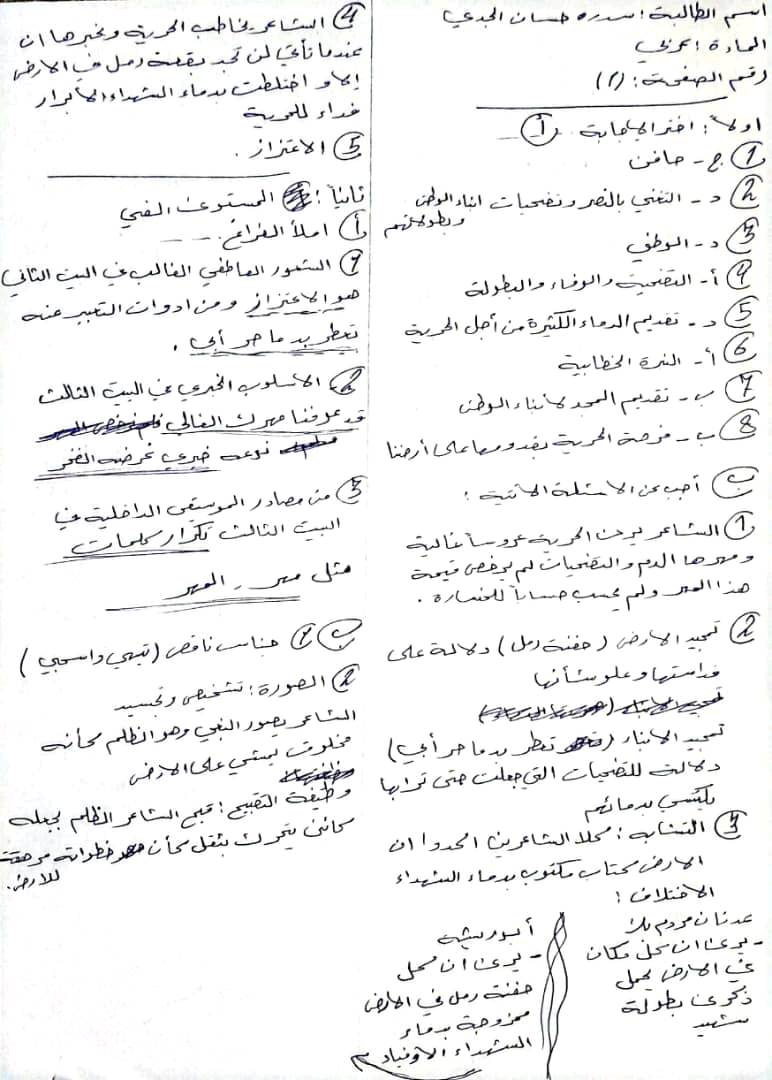 اسم الطالبة: سدره حسان الجدعي
المادة: عربي
رقم الصفحة: (١)
اولاً: اختر الإجابة. أ
1 ج- حافن
2 د- التغني بالنصر وتضحيات ابناء الوطن
وبطولاتهم
3 د- الوطني
4 أ- التضحية والوفاء والبطولة
5 د- تقديم الدماء الكثيرة من أجل الحرية
6 أ- النبرة الخطابية
7 ب- تقديم المجد لأبناء الوطن
8 ب- فرحة الحرية بقدومها على أرضنا
ب أجب عن الاسئلة الاتية:
1 الشاعر يرى الحرية عروساً غالية
ومهرها الدم والتضحيات لم يرخص قيمة
هذا المهر ولم يحسب حساباً للخسارة.
2 تمجيد الارض (حفنة رمل) دلالة على
قداستها وعلو شأنها
تمجيد الابناء (تعطر بدما حر أبي)
دلالة للتضحيات التي جعلت حتى ترابها
يكتسي بدمائهم
3 التشابه: كلا الشاعرين اكدوا ان
الارض كتاب مكتوب بدماء الشهداء
الاختلاف:
عدنان مردم بك
- يرى ان كل مكان
في الارض يحمل
ذكرى بطولة
شهيد
أبو ريشه
- يرى أن كل
حفنة رمل في الارض
ممزوجة بدماء
الشهداء
4 الشاعر يخاطب الحرية ويخبرها ان
عندما تأتي لن تجد بقعة رمل في الارض
إلا و اختلطت بدماء الشهداء الأبرار
فداء للحرية
5 الاعتزاز.
ثانياً: المستوى الفني
أ املأ الفراغ.
1 الشعور العاطفي الغالب في البيت الثاني
هو الاعتزاز ومن ادوات التعبير عنه
تعطر بدما حر أبي.
2 الأسلوب الخبري في البيت الثالث
قد عرفنا مهرك الغالي
نوعه خبري غرضه الفخر
3 من مصادر الموسيقى الداخلية في
البيت الثالث تكرار كلمات
مثل مهر - المهر
ب 1 جناس ناقص (تيهي واسحبي)
2 الصورة: تشخيص وتجسيد
الشاعر يصور البغي وهو الظلم كأنه
مخلوق يمشي على الارض
وظيفة التقبيح: قبح الشاعر الظلم بجعله
كائن يتحرك بثقل كأن خطواته مرهقة
للارض.